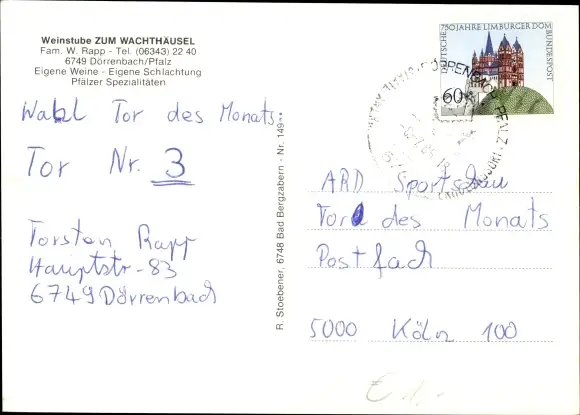 Weinstube ZUM WACHTHÄUSEL
Fam. W. Rapp - Tel. (06343) 22 40
6749 Dörrenbach/Pfalz
Eigene Weine - Eigene Schlachtung
Pfälzer Spezialitäten
Wahl Tor des Monats
Tor Nr. 3
Torsten Rapp
Hauptstr-83
6749 Dörrenbach
R. Stoebener, 6748 Bad Bergzabern - Nr. 149**
750 JAHRE LIMBURGER DOM
DEUTSCHE BUNDESPOST
60
DÖRRENBACH, PFALZ
ARD Sportschau
Tor des Monats
Postfach
5000 Köln 100